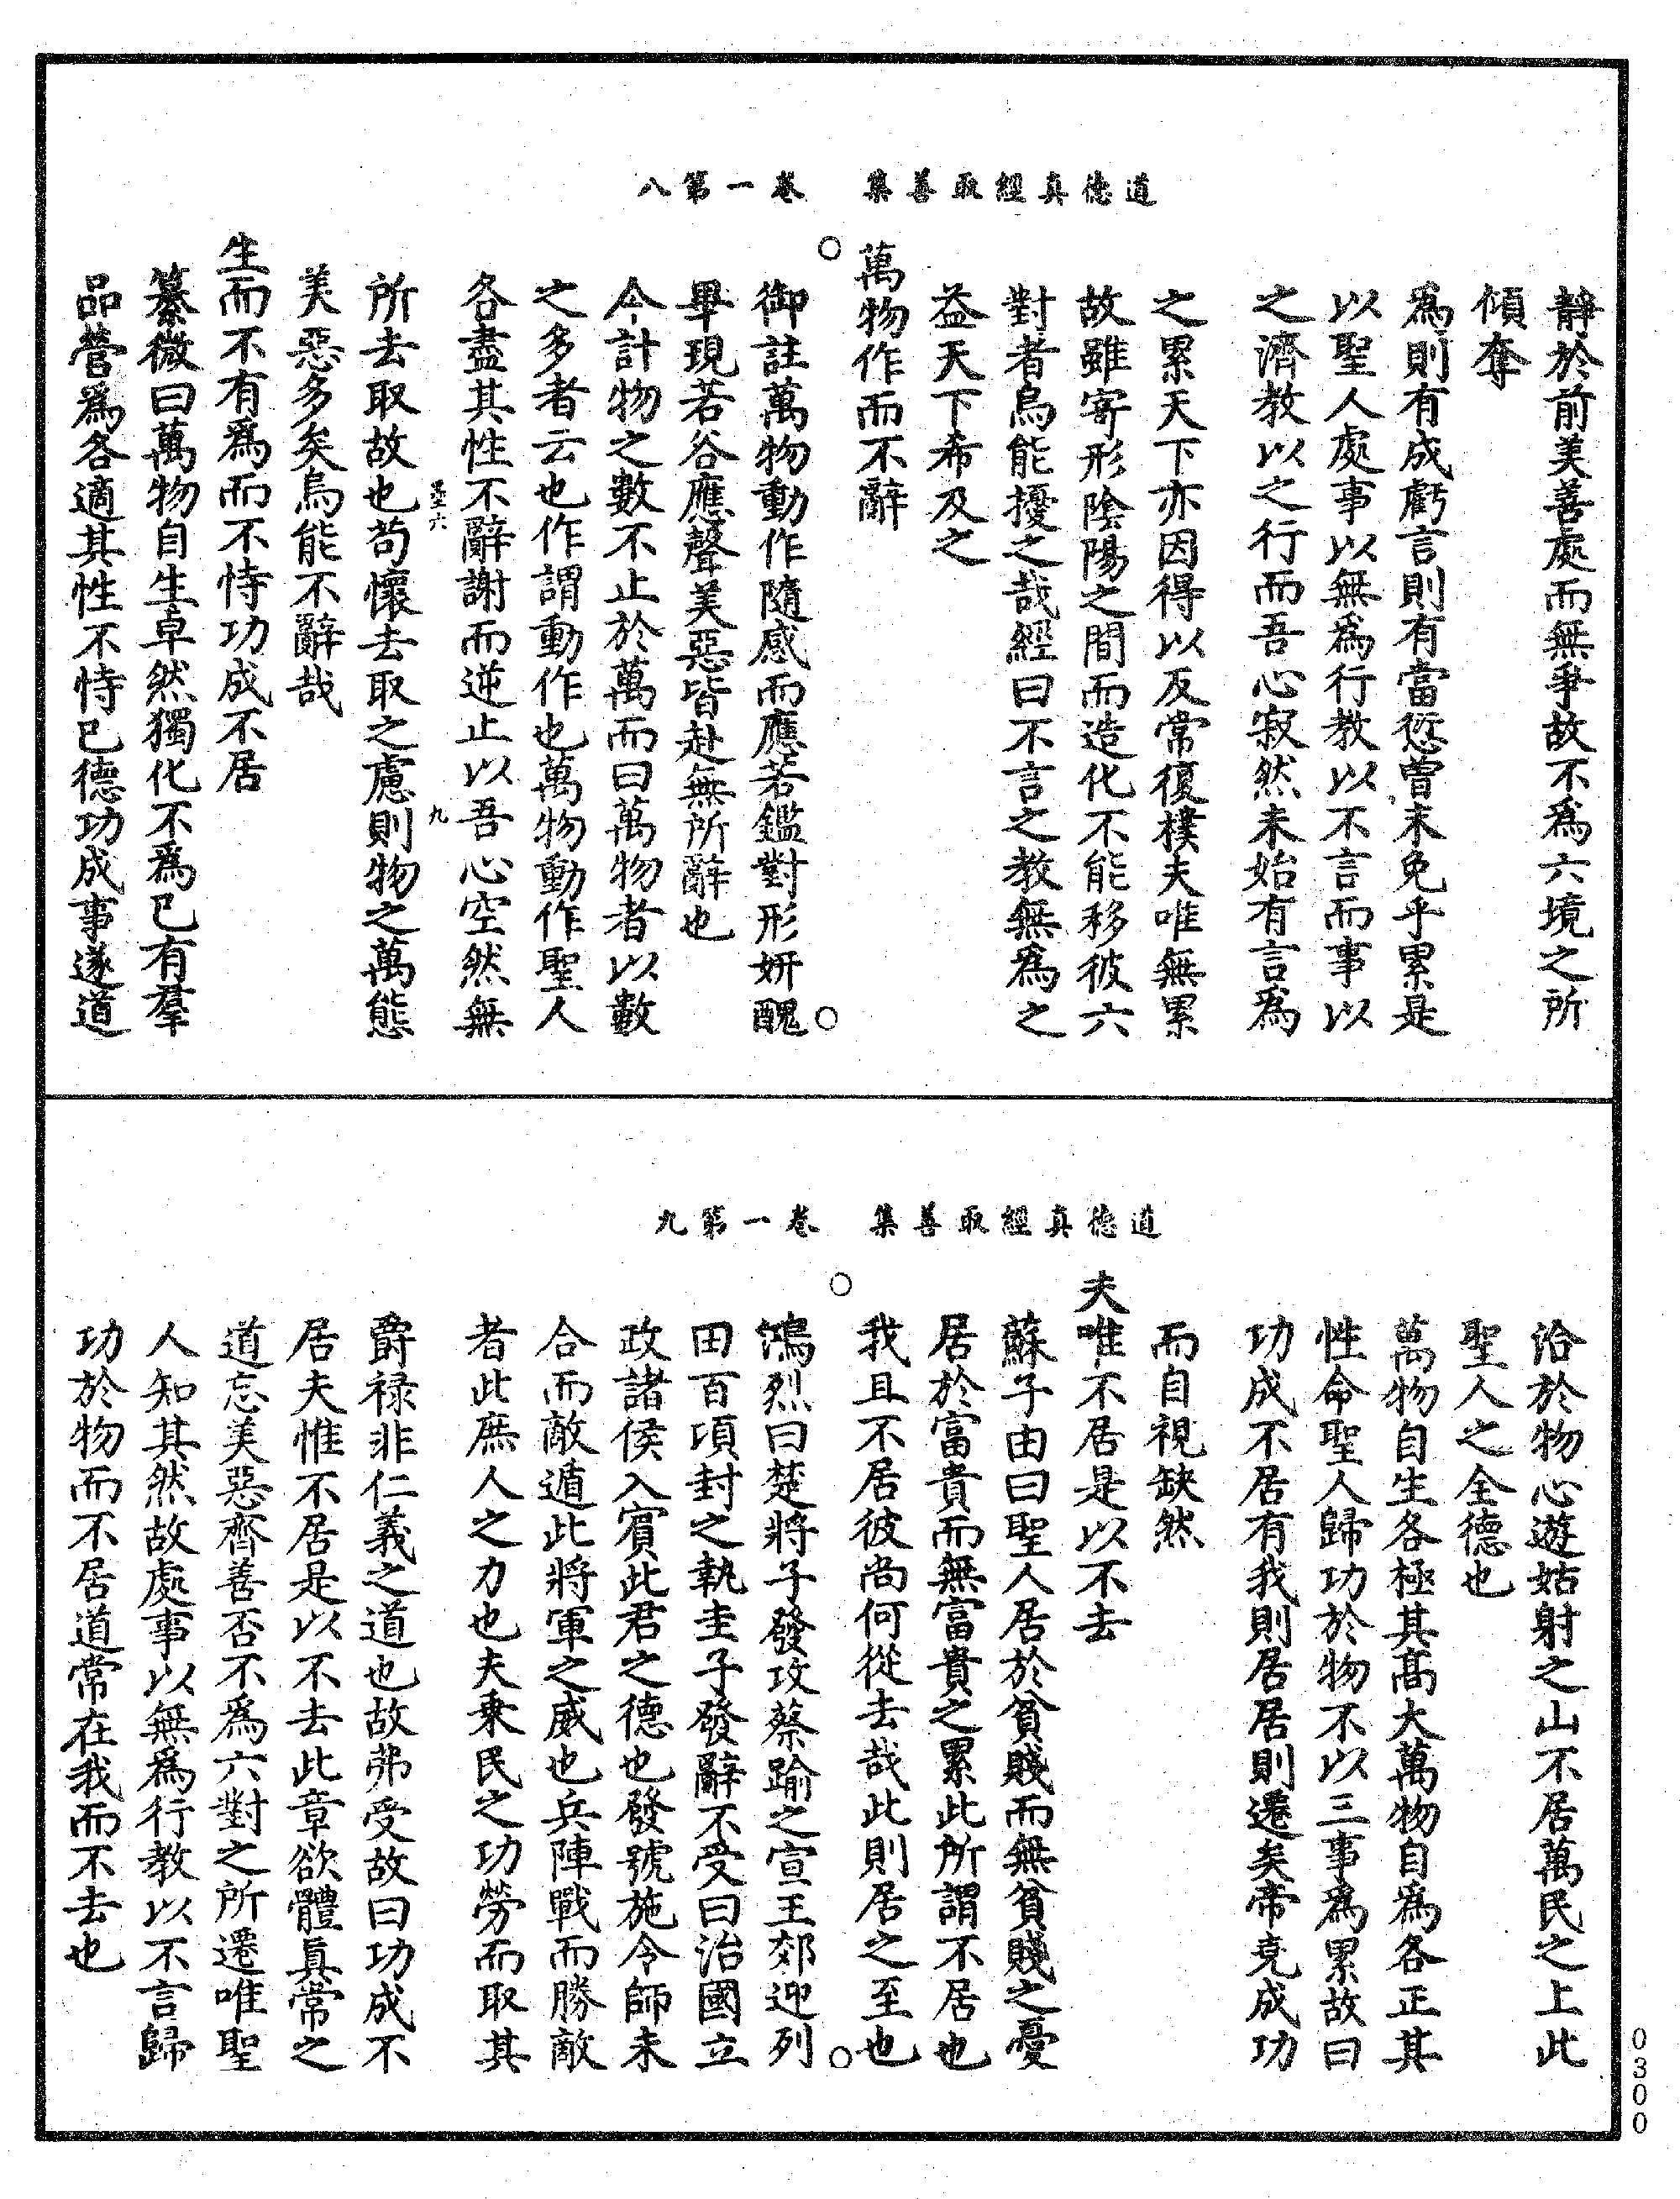 道德真經取善集　卷一第八
靜於前美善處而無爭故不為六境之所
傾奪
為則有成虧言則有當愆曾未免乎累是
以聖人處事以無為行教以不言而事以
之濟教以之行而吾心寂然未始有言為
之累天下亦因得以反常復樸夫唯無累
故雖寄形陰陽之間而造化不能移彼六
對者烏能擾之哉經曰不言之教無為之
益天下希及之
萬物作而不辭
御註萬物動作隨感而應若鑑對形妍醜
畢現若谷應聲美惡皆赴無所辭也
今計物之數不止於萬而曰萬物者以數
之多者云也作謂動作也萬物動作聖人
各盡其性不辭謝而逆止以吾心空然無
墨六　九
所去取故也苟懷去取之慮則物之萬態
美惡多矣烏能不辭哉
生而不有為而不恃功成不居
纂微曰萬物自生卓然獨化不為已有羣
品營為各適其性不恃已德功成事遂道
道德真經取善集　卷一第九
洽於物心遊姑射之山不居萬民之上此
聖人之全德也
萬物自生各極其高大萬物自為各正其
性命聖人歸功於物不以三事為累故曰
功成不居有我則居居則遷矣帝堯成功
而自視缺然
夫唯不居是以不去
蘇子由曰聖人居於貧賤而無貧賤之憂
居於富貴而無富貴之累此所謂不居也
我且不居彼尚何從去哉此則居之至也
鴻烈曰楚將子發攻蔡踰之宣王郊迎列
田百項封之執圭子發辭不受曰治國立
政諸侯入賓此君之德也發號施令師未
合而敵遁此將軍之威也兵陣戰而勝敵
者此庶人之力也夫乘民之功勞而取其
爵祿非仁義之道也故弗受故曰功成不
居夫惟不居是以不去此章欲體真常之
道忘美惡齊善否不為六對之所遷唯聖
人知其然故處事以無為行教以不言歸
功於物而不居道常在我而不去也
0300